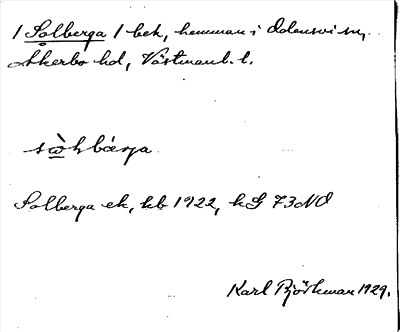 1 Solberga 1 bek, hemman i Odensvi sn,
Åkerbo hd, Västmanl. l.
sὼhbærja
Solberga ek, kb 1922, kG 73 NO
Karl Björkman 1929.